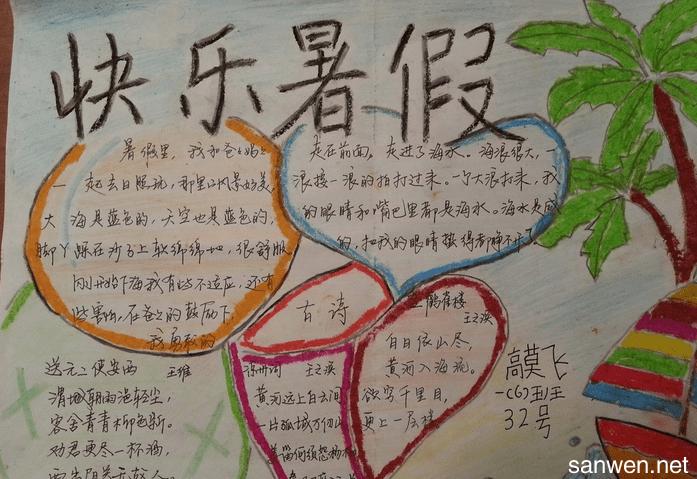 快乐暑假
暑假里，我和爸爸妈妈
一起去日照玩，那里的风景好美，
大海是蓝色的，天空也是蓝色的，
脚丫踩在沙子上软绵绵地，很舒服
刚开始下海我有些不适应，还有
些害怕，在爸爸的鼓励下，
我勇敢的
走在前面，走进了海水。海浪很大，一
浪接一浪的拍打过来。一个大浪打来，我
的眼睛和嘴巴里都是海水。海水是咸
的，把我的眼睛蛰得都睁不开了。
古诗
送元二使安西
王维
渭城朝雨浥轻尘，
客舍青青柳色新。
劝君更尽一杯酒，
西出阳关无故人。
凉州词
王之涣
黄河远上白云间
一片孤城万仞山
羌笛何须怨杨柳
鹳雀楼
王之涣
白日依山尽，
黄河入海流。
欲穷千里目，
更上一层楼
高莫飞
一(6)班
32号
sanwen.net